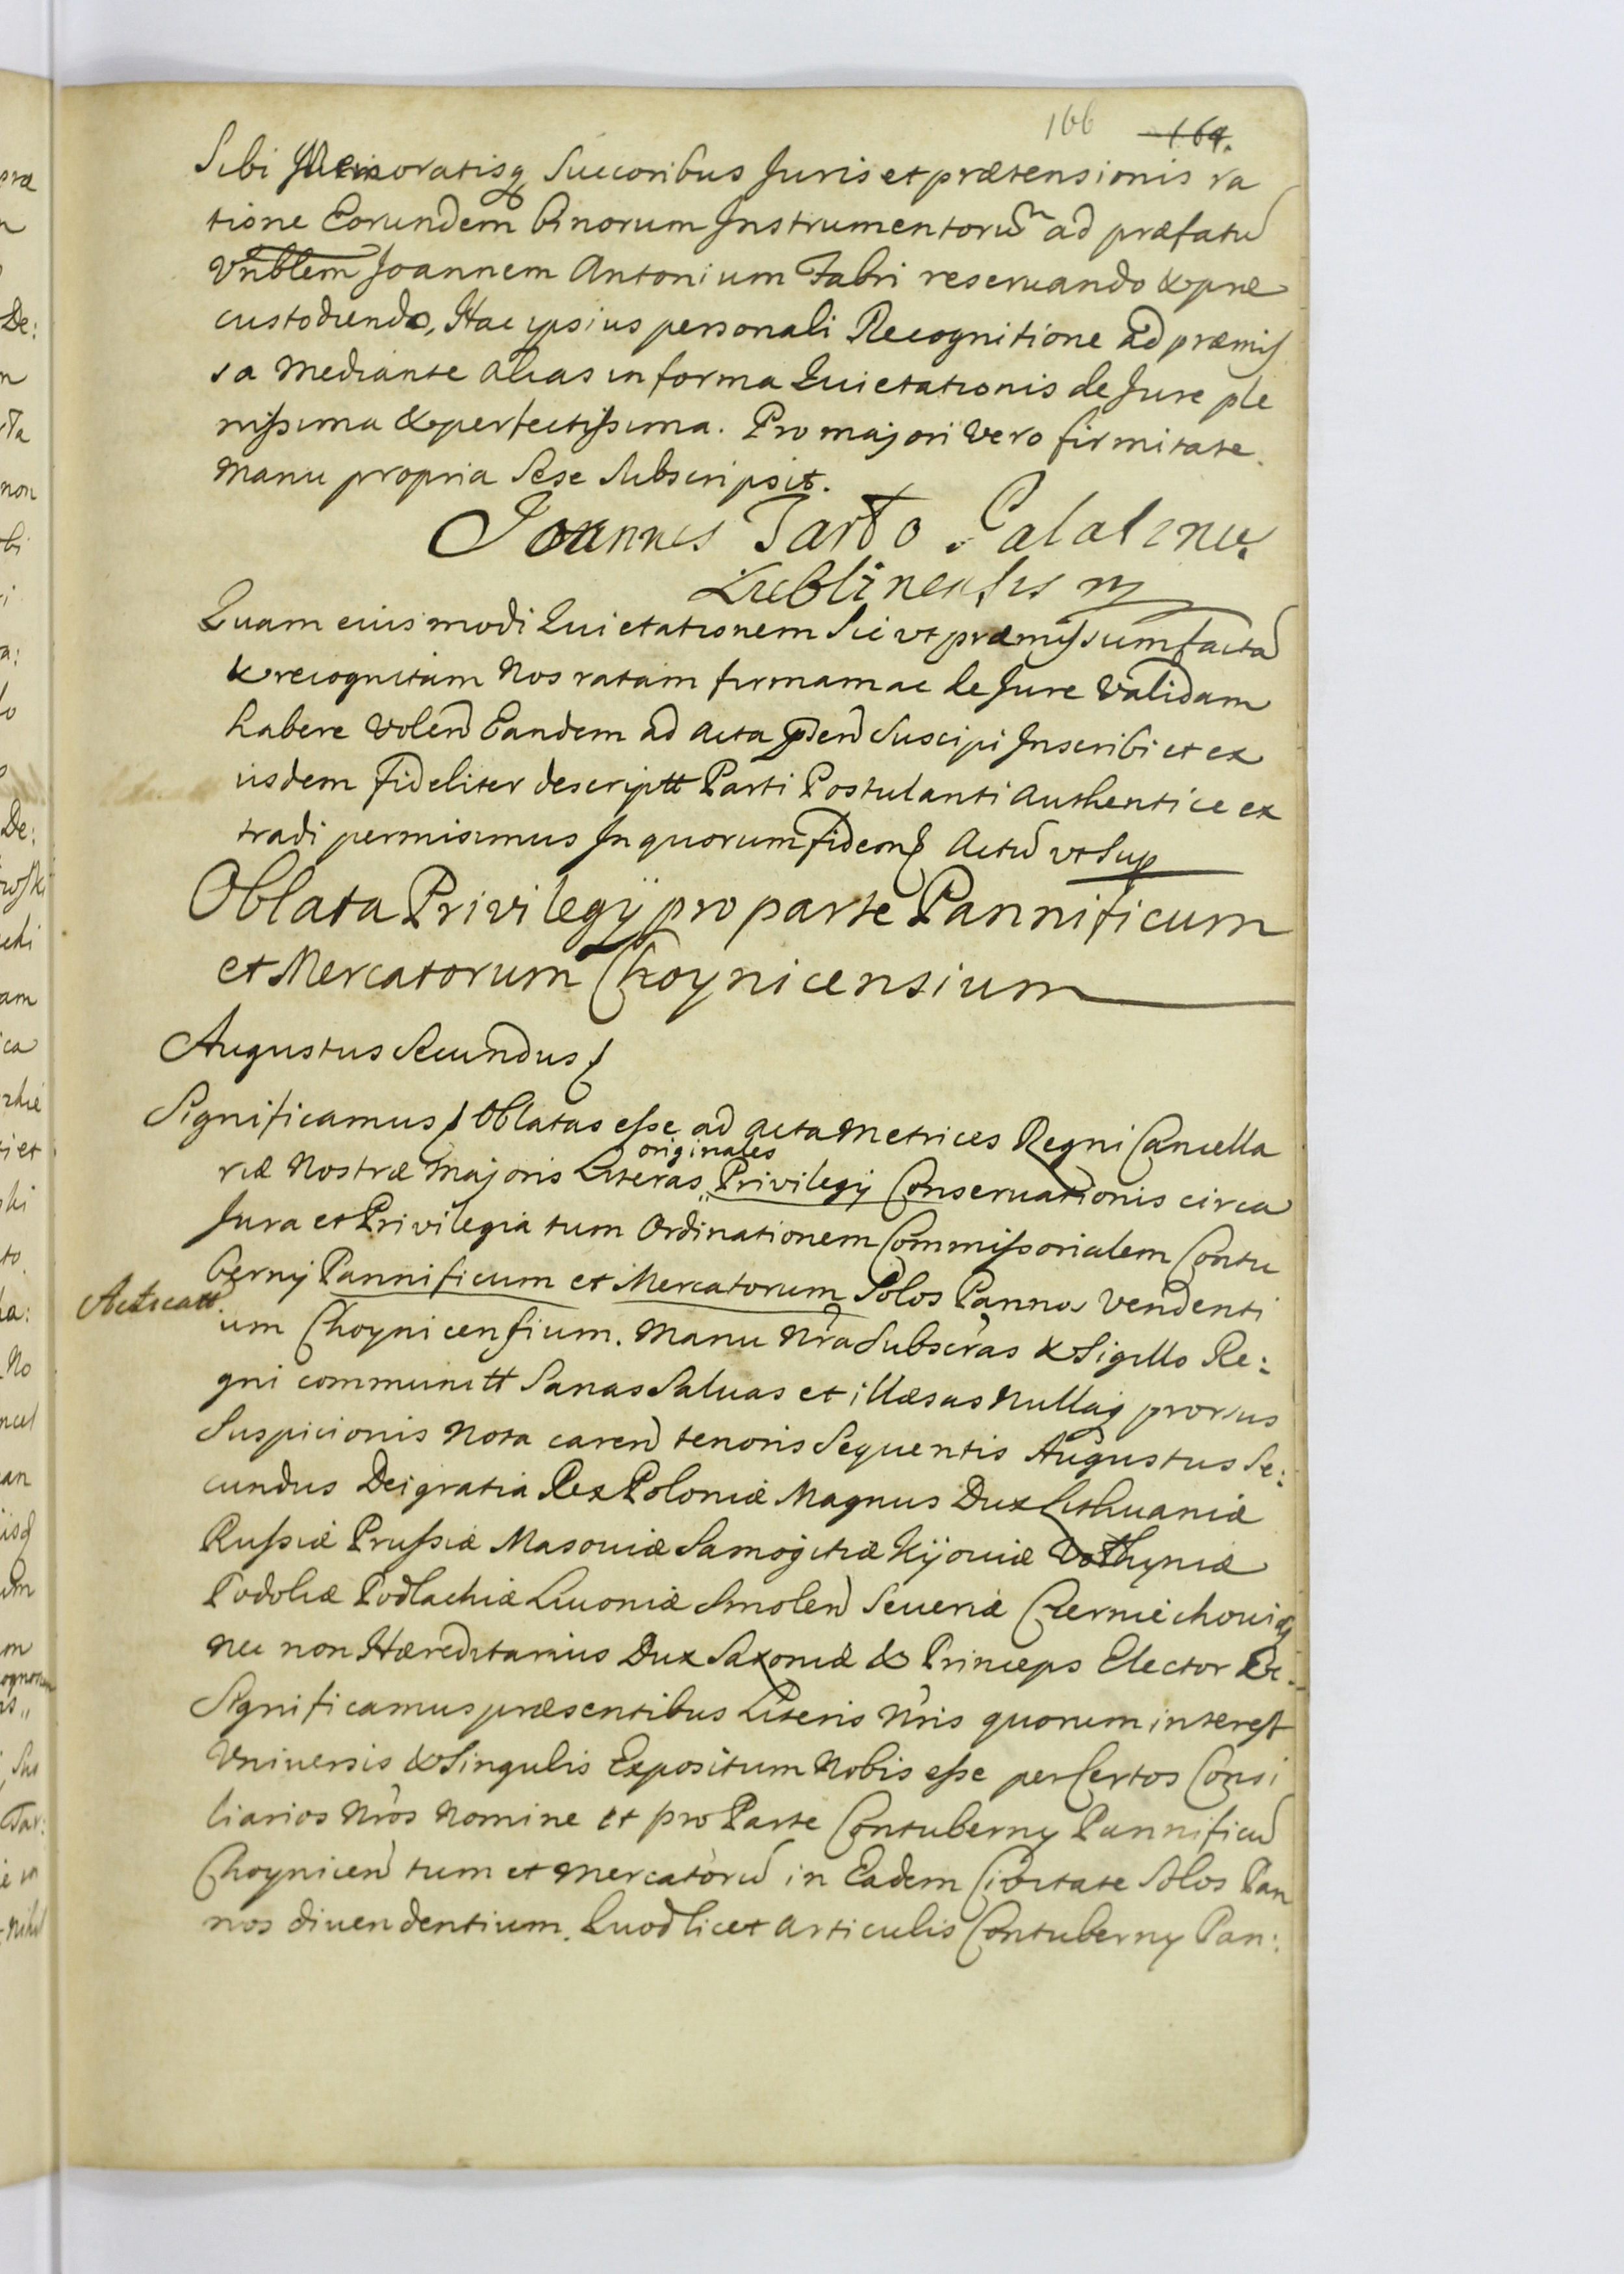 166 164.
Sibi Memoratisq Succoribus Juris et prætensionis ra
tione Eorundem binorum Instrumentorū ad præfatū
Vnblem Joannem Antonium Fabri reseruando & præ
custodiendo, Hac ipsius personali Recognitione ad præmis
sa mediante alias in forma Quietationis de Jure ple
nissima & perfectissima. Pro majori vero firmitate
manu propria Sese Subscripsit.
Joannes Tarło Palatinus
Lublinensis mp
Quam eiusmodi Quietationem Sic vt præmissum factā
& recognitam Nos ratam firmam ac de Jure Validam
habere volen Eandem ad acta pden Suscipi Inscribi et ex
iisdem fideliter descriptt Parti Postulanti Authentice ex
tradi permisimus In quorum fidem Actū vt Sup
Oblata Privilegij pro parte Pannificum
et Mercatorum Choynicensium
Augustus Secundus
Significamus Oblatas esse ad acta Metrices Regni Cancella
riæ Nostræ Majoris Literas originales Privilegij Conseruationis circa
Jura et Privilegia tum Ordinationem Commissorialem Contu
bernij Pannificum et Mercatorum Solos Pannos Vendenti
um Choynicensium. Manu Nra Subscras & Sigillo Re:
gni communitt Sanas Saluas et illæsas Nullaq prorsus
Suspicionis Nota caren tenoris Sequentis Augustus Se:
cundus Dei gratia Rex Poloniæ Magnus Dux Lithuaniæ
Russiæ Prussiæ Masouiæ Samogitiæ Kijouiæ Volhyniæ
Podoliæ Podlachiæ Liuoniæ Smolen Seueriæ Czerniechouiæq
nec non Hæreditarius Dux Saxoniæ & Princeps Elector &c.
Significamus præsentibus Literis Nris quorum interest
Vniuersis & Singulis Expositum Nobis esse per Certos Consi
liarios Nros Nomine et pro Parte Contuberny Pannificū
Choynicen tum et Mercatorū in Eadem Ciuitate Solos Pan
nos diuendentium. Quod licet Articulis Contuberny Pan: